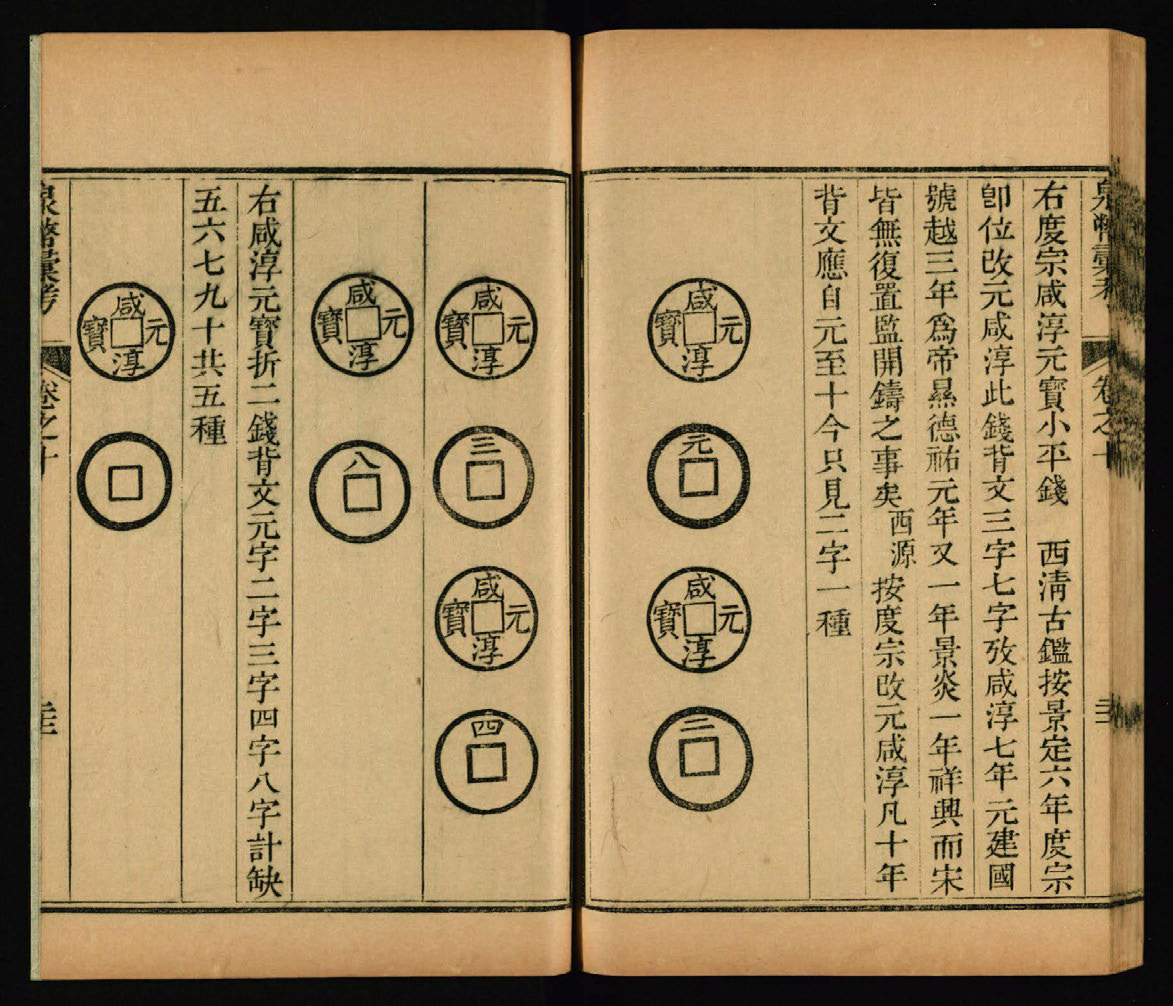 泉幣彙考
卷之十
右度宗咸淳元寶小平錢　西淸古鑑按景定六年度宗
卽位改元咸淳此錢背文三字七字攷咸淳七年元建國
號越三年爲帝㬎德祐元年又一年景炎一年祥興而宋
皆無復置監開鑄之事矣西源按度宗改元咸淳凡十年
背文應自元至十今只見二字一種
咸淳元寶
元
咸淳元寶
二
咸淳元寶
三
咸淳元寶
四
咸淳元寶
八
右咸淳元寶折二錢背文元字二字三字四字八字計缺
五六七九十共五種
咸淳元寶
泉幣彙考
卷之十